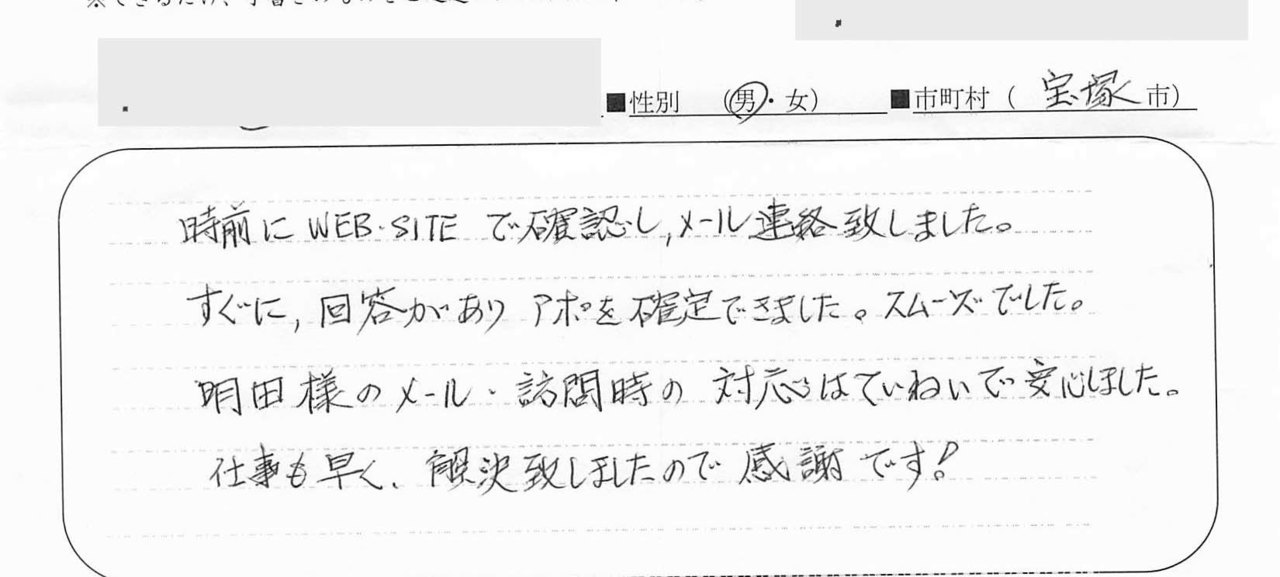 ■性別 （男・女） ■市町村（ 宝塚 市）
時前に WEB・SITE で確認し,メール連絡致しました。
すぐに, 回答があり アポを確定できました。スムーズでした。
明田様のメール・訪問時の 対応はていねいで安心しました。
仕事も早く、解決致しましたので 感謝です!